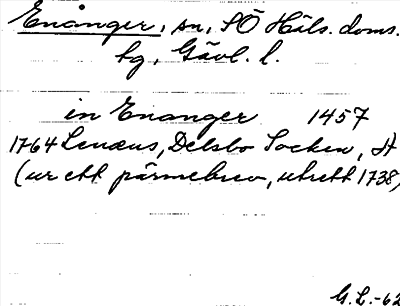 Enånger, sn, SÖ Häls. doms.
hg, Gävl. l.
in Enanger 1457
1764 Lenæus, Delsbo Socken,
(ur ett pärmebrev, utrett 1738)
G.L.-62